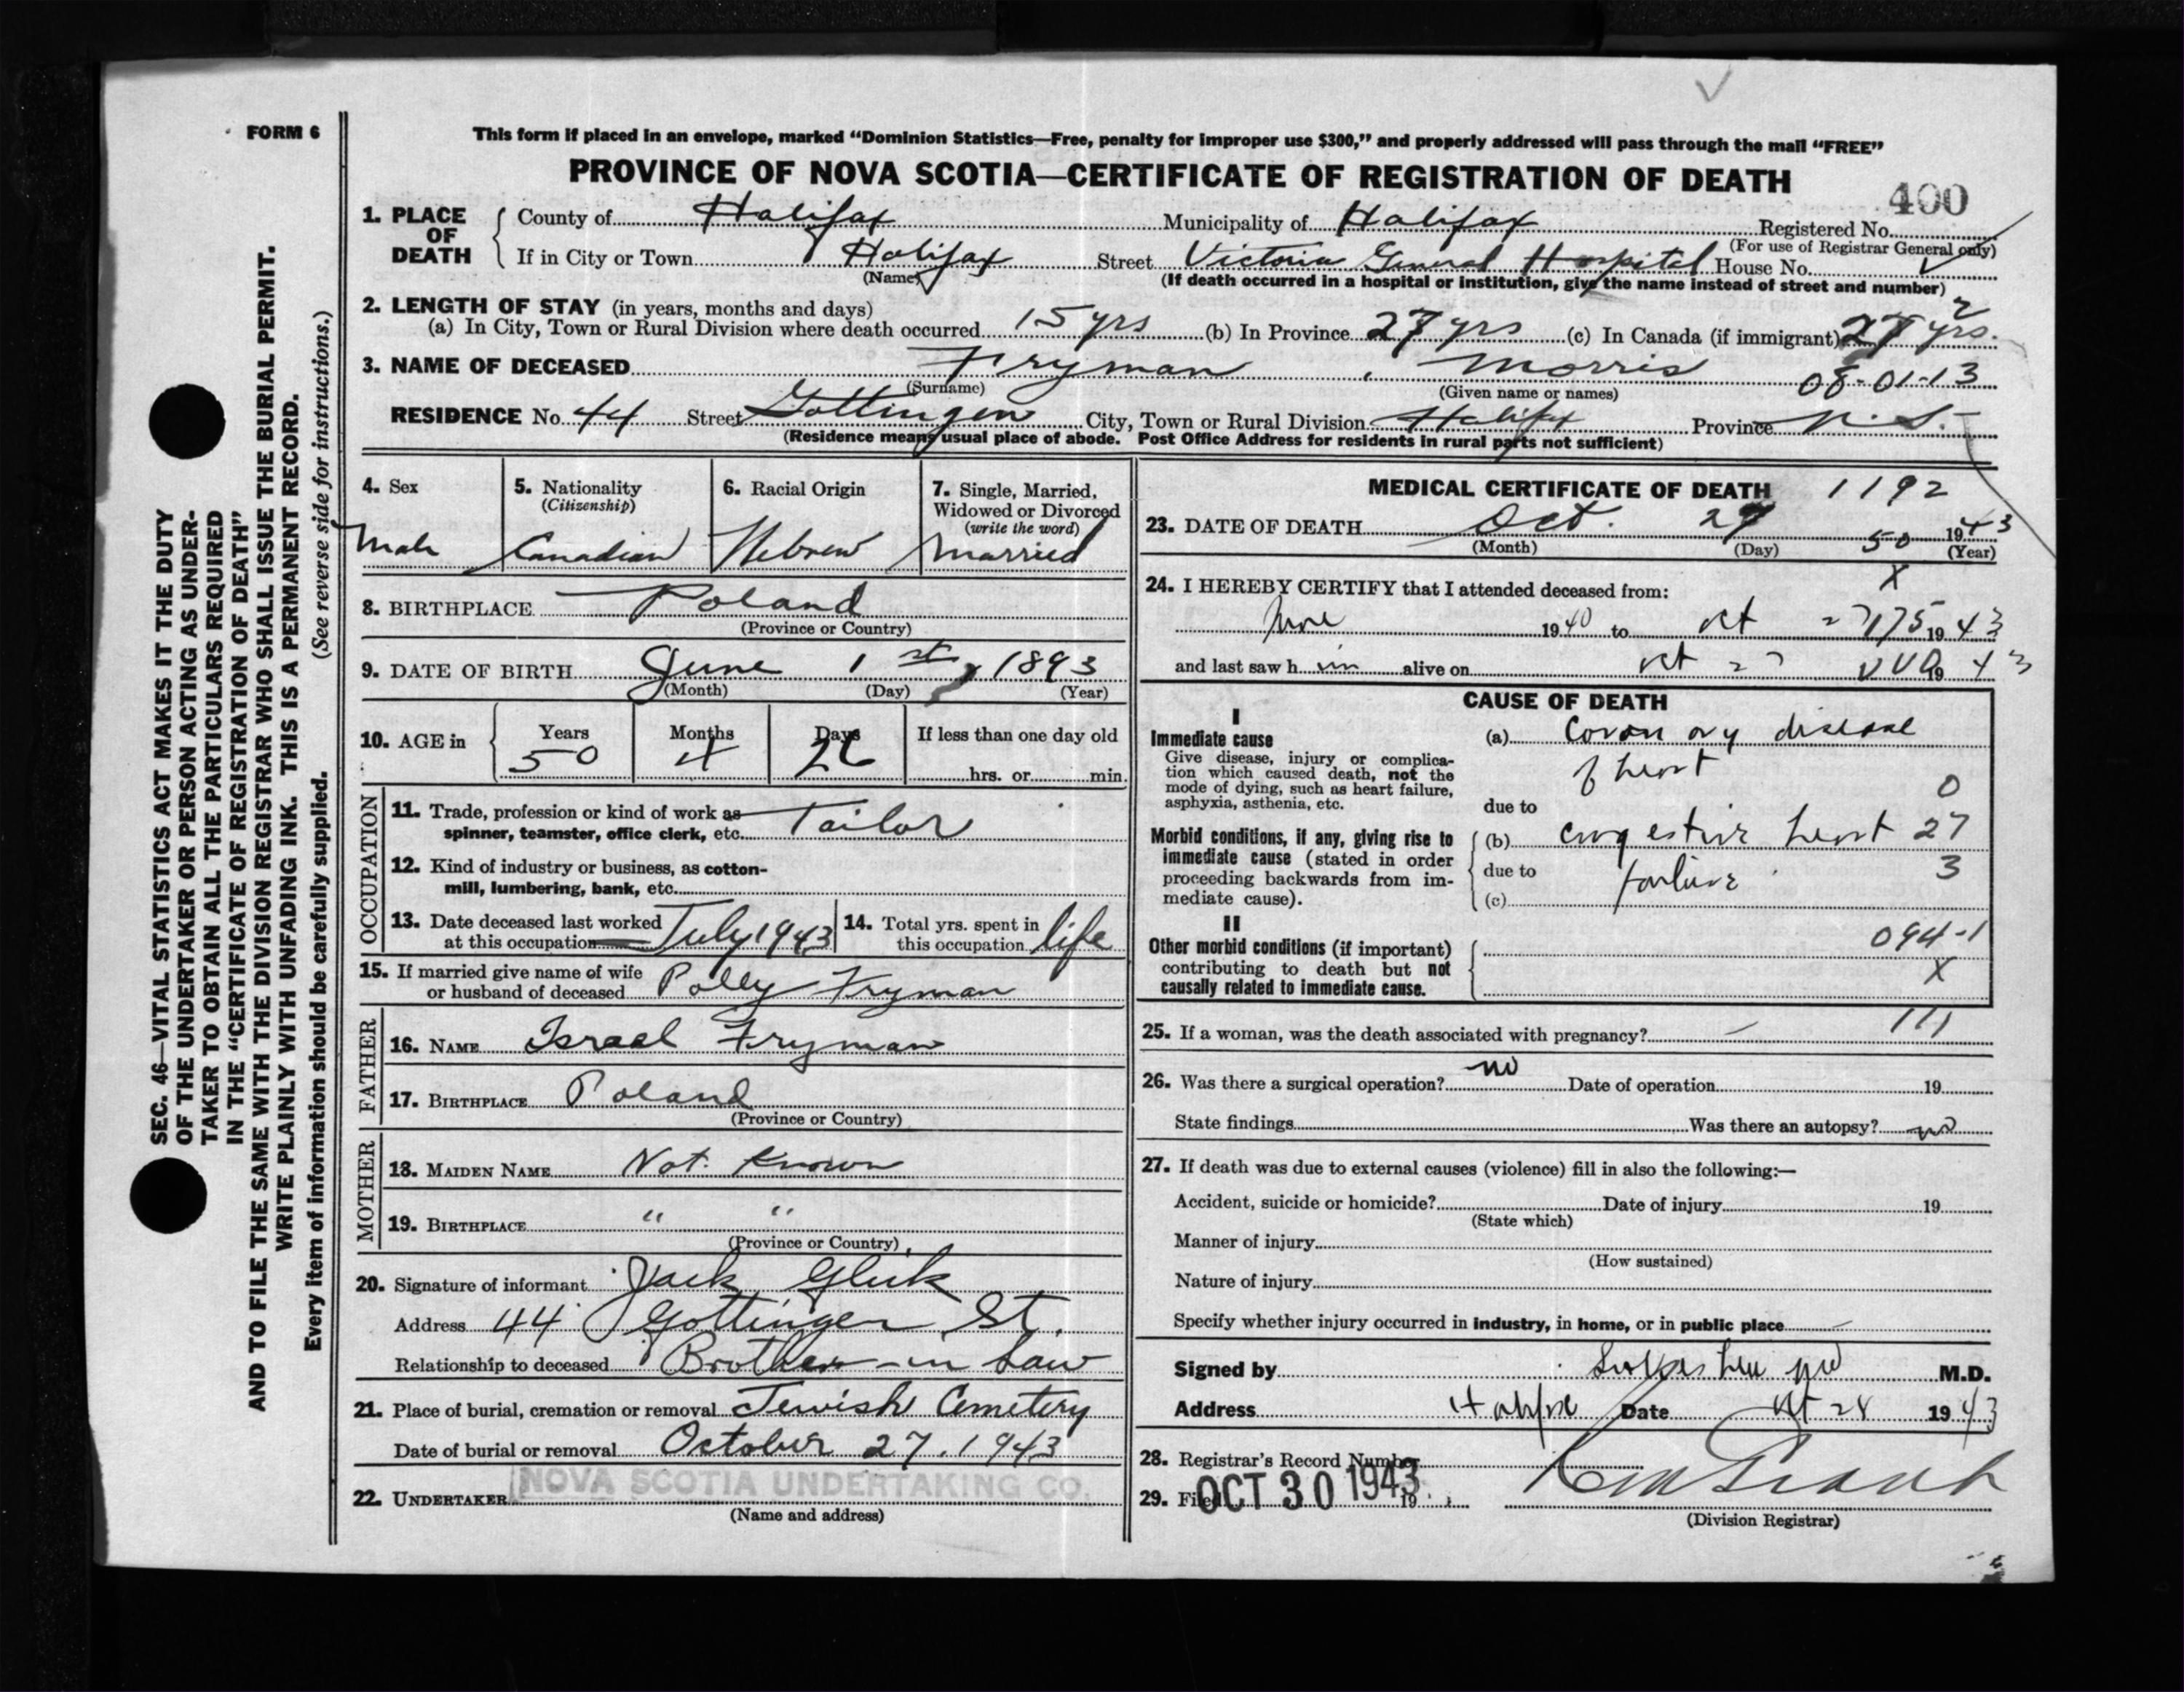 FORM 6
This form if placed in an envelope, marked “Dominion Statistics—Free, penalty for improper use $300,” and properly addressed will pass through the mail “FREE”
PROVINCE OF NOVA SCOTIA—CERTIFICATE OF REGISTRATION OF DEATH
400
1. PLACE OF DEATH { County of Halifax Municipality of Halifax Registered No.
(For use of Registrar General only)
If in City or Town Halifax Street Victoria General Hospital House No.
(Name) (If death occurred in a hospital or institution, give the name instead of street and number)
2. LENGTH OF STAY (in years, months and days)
(a) In City, Town or Rural Division where death occurred 15 yrs (b) In Province 27 yrs (c) In Canada (if immigrant) 27 yrs. 2
3. NAME OF DECEASED Fryman, Morris 08-01-13
(Surname) (Given name or names)
RESIDENCE No. 44 Street Gottingen City, Town or Rural Division Halifax Province N.S.
(Residence means usual place of abode. Post Office Address for residents in rural parts not sufficient)
SEC. 46—VITAL STATISTICS ACT MAKES IT THE DUTY
OF THE UNDERTAKER OR PERSON ACTING AS UNDER-
TAKER TO OBTAIN ALL THE PARTICULARS REQUIRED
IN THE “CERTIFICATE OF REGISTRATION OF DEATH”
AND TO FILE THE SAME WITH THE DIVISION REGISTRAR WHO SHALL ISSUE THE BURIAL PERMIT.
WRITE PLAINLY WITH UNFADING INK. THIS IS A PERMANENT RECORD.
Every item of information should be carefully supplied. (See reverse side for instructions.)
4. Sex
Male
5. Nationality
(Citizenship)
Canadian
6. Racial Origin
Hebrew
7. Single, Married,
Widowed or Divorced
(write the word)
Married
8. BIRTHPLACE Poland
(Province or Country)
9. DATE OF BIRTH June 1st, 1893
(Month) (Day) (Year)
10. AGE in { Years Months Days If less than one day old
50 4 26 hrs. or min.
OCCUPATION
11. Trade, profession or kind of work as
spinner, teamster, office clerk, etc. Tailor
12. Kind of industry or business, as cotton-
mill, lumbering, bank, etc.
13. Date deceased last worked
at this occupation July 1943
14. Total yrs. spent in
this occupation life
15. If married give name of wife
or husband of deceased Polly Fryman
FATHER
16. NAME Israel Fryman
17. BIRTHPLACE Poland
(Province or Country)
MOTHER
18. MAIDEN NAME Not Known
19. BIRTHPLACE “ “
(Province or Country)
20. Signature of informant Jack Gluk
Address 44 Gottingen St.
Relationship to deceased Brother-in Law
21. Place of burial, cremation or removal Jewish Cemetery
Date of burial or removal October 27, 1943
22. UNDERTAKER NOVA SCOTIA UNDERTAKING CO.
(Name and address)
MEDICAL CERTIFICATE OF DEATH 1192
23. DATE OF DEATH Oct. 27 50 1943
(Month) (Day) (Year)
24. I HEREBY CERTIFY that I attended deceased from: X
1940 to Oct 27 175 1943
and last saw him alive on Oct 27 1943
CAUSE OF DEATH
I
Immediate cause
Give disease, injury or complica-
tion which caused death, not the
mode of dying, such as heart failure,
asphyxia, asthenia, etc.
(a) Coronary disease
of heart
0
due to
Morbid conditions, if any, giving rise to
immediate cause (stated in order
proceeding backwards from im-
mediate cause).
(b) congestive heart 27
due to failure 3
(c)
II
094-1
Other morbid conditions (if important)
contributing to death but not
causally related to immediate cause.
X
25. If a woman, was the death associated with pregnancy? — 111
26. Was there a surgical operation? no Date of operation 19
State findings Was there an autopsy? no
27. If death was due to external causes (violence) fill in also the following:—
Accident, suicide or homicide? Date of injury 19
(State which)
Manner of injury
(How sustained)
Nature of injury
Specify whether injury occurred in industry, in home, or in public place
Signed by M.D.
Address Halifax Date Oct 28 1943
28. Registrar's Record Number
29. Filed OCT 30 1943 19
(Division Registrar)